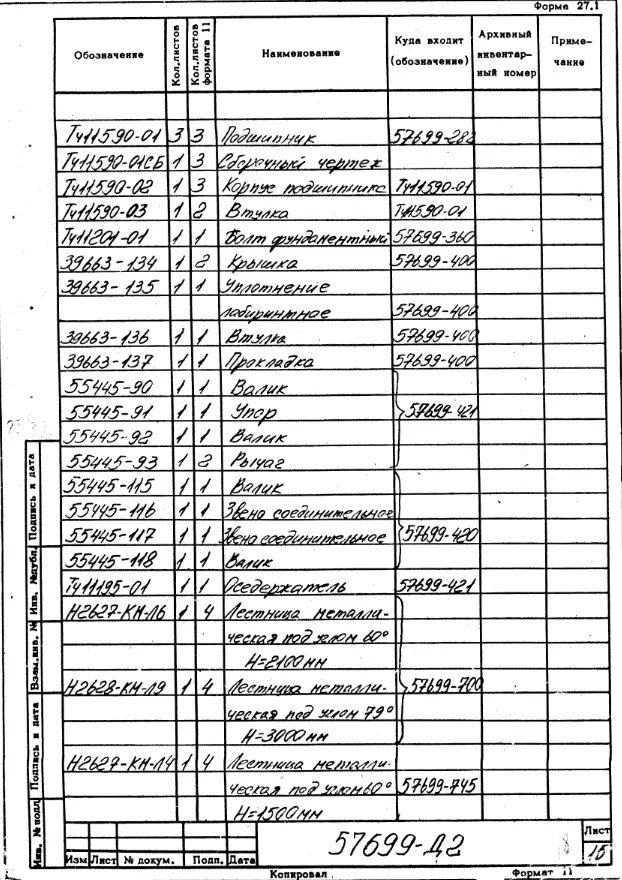 Форма 27.1
Обозначение Кол.листов Кол.листов формата 11 Наименование Куда входит (обозначение) Архивный инвентар-ный номер Приме-чание
Тч11590-01 3 3 Подшипник 57699-282
Тч11590-01СБ 1 3 Сборочный чертеж
Тч11590-02 1 3 Корпус подшипника Тч11590-01
Тч11590-03 1 2 Втулка Тч11590-01
Тч11201-01 1 1 Болт фундаментный 57699-360
39663-134 1 2 Крышка 57699-400
39663-135 1 1 Уплотнение
лабиринтное 57699-400
39663-136 1 1 Втулка 57699-400
39663-137 1 1 Прокладка 57699-400
55445-90 1 1 Валик
55445-91 1 1 Упор 57699-421
55445-92 1 1 Валик
55445-93 1 2 Рычаг
55445-115 1 1 Валик
55445-116 1 1 Звено соединительное
55445-117 1 1 Звено соединительное 57699-420
55445-118 1 1 Валик
Тч11195-01 1 1 Оседержатель 57699-421
Н2627-КМ-Л6 1 4 Лестница металли-
ческая под углом 60°
Н=2100мм
Н2628-КМ-Л9 1 4 Лестница металли- 57699-700
ческая под углом 79°
Н=3000мм
Н2627-КМ-Л4 1 4 Лестница металли-
ческая под углом 60° 57699-745
Н=1500мм
Подпись и дата
Инв. №дубл.
Взам.инв. №
Подпись и дата
Инв. №подл
Изм Лист № докум. Подп. Дата
57699-Д2
Лист
15
Копировал
Формат 11